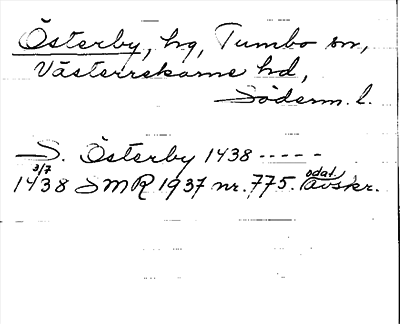 Österby, hg, Tumbo sn,
Västerrekarne hd,
Söderm. l.
S. Österby 1438 -----
3/7
1438 SMR 1937 nr. 775. odat. Avskr.